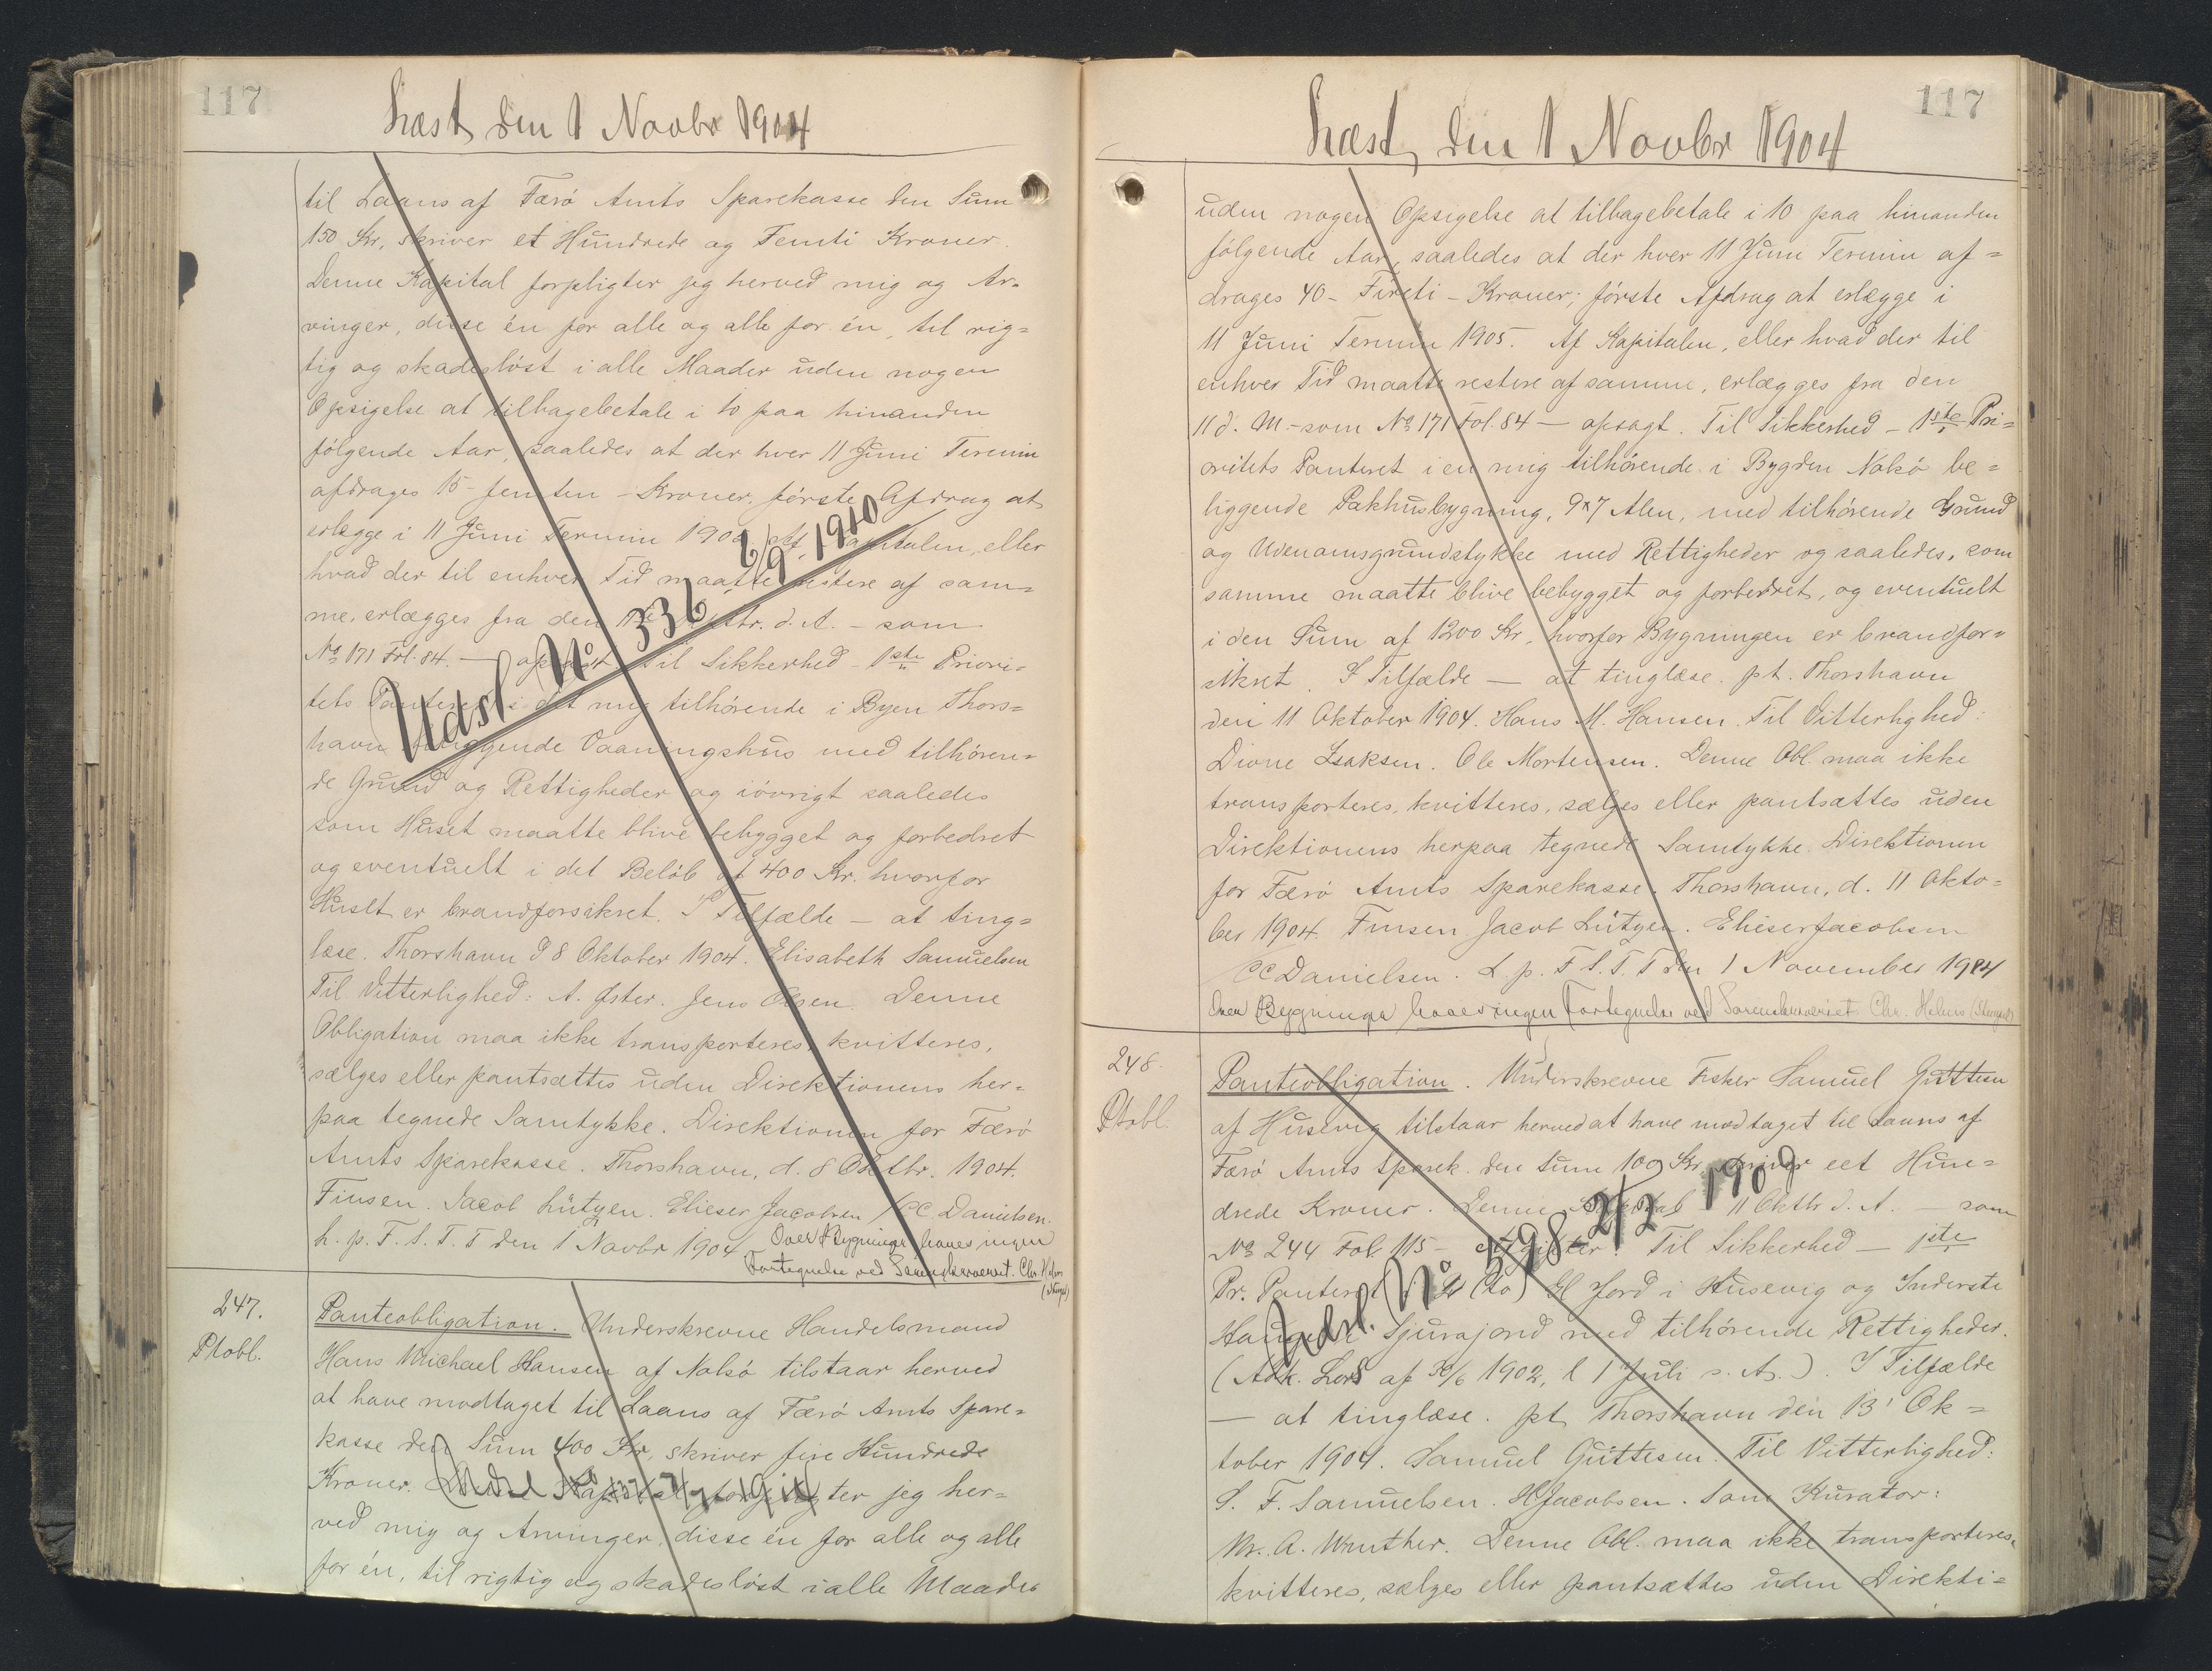 117
Læst den 1 Novbr 1904
til Laans af Færö Amts Sparekasse den Sum
150 Kr, skriver et Hundrede og Femti Kroner.
Denne Kapital forpligter jeg herved mig og Ar-
vinger, disse én for alle og alle for én, til rig=
tig og skadeslöst i alle Maader uden nogen
Opsigelse at tilbagebetale i 10 paa hinanden
fölgende Aar, saaledes at der hver 11 Juni Termin
afdrages 15 - femten - Kroner, förste Afdrag at
erlægge i 11 Juni Termin Af Kapitalen, eller
hvad der til enhver Tid maatte restere af sam=
me, erlægges fra den d. A. - som
No 171 Fol. 84. — opsagt Til Sikkerhed - 1ste Priori=
tets Panteret i det mig tilhörende i Byen Thors=
havn beliggende Vaaningshus med tilhören=
de Grund og Rettigheder og iövrigt saaledes
som Huset maatte blive bebygget og forbedret
og eventuelt i det Belöb af 400 Kr. hvorfor
Huset er brandforsikret. I Tilfælde — at ting=
læse. Thorshavn d 8 Oktober 1904. Elisabeth Samuelsen
Til Vitterlighed: A. Öster. Jens Olsen. Denne
Obligation maa ikke transporteres, kvitteres,
sælges eller pantsættes uden Direktionens her=
paa tegnede Samtykke. Direktionen for Færö
Amts Sparekasse. Thorshavn, d. 8 Oktbr. 1904.
Finsen. Jacob Lützen. Elieser Jacobsen / CC. Danielsen.
L. p. F. S. T. T den 1 Novbr 1904. Over Bygninger haves ingen
Fortegnelse ved Sorenskriveriet. Chr. Holm
(Konst)
Udsl. No 336 6/9 1910
247.
Ptobl.
Panteobligation. Underskrevne Handelsmand
Hans Michael Hansen af Nolsö tilstaar herved
at have modtaget til Laans af Færö Amts Spare=
kasse den Sum 400 Kr, skriver fire Hundrede
Kroner. Denne Kapital forpligter jeg her=
ved mig og Arvinger, disse én for alle og alle
for én, til rigtig og skadeslöst i alle Maader
117
Læst, den 1 Novbr 1904
uden nogen Opsigelse at tilbagebetale i 10 paa hinanden
fölgende Aar, saaledes at der hver 11 Juni Termin af=
drages 40 - Fireti - Kroner; förste Afdrag at erlægge i
11 Juni Termin 1905. Af Kapitalen, eller hvad der til
enhver Tid maatte restere af samme, erlægges fra den
11 d. M. - som No 171 Fol. 84 — opsagt. Til Sikkerhed - 1ste Pri=
oritets Panteret i en mig tilhörende i Bygden Nolsö be=
liggende Pakhusbygning, 9x7 Alen, med tilhörende Grund
og Udenomsgrundstykke med Rettigheder og saaledes, som
samme maatte blive bebygget og forbedret, og eventuelt
i den Sum af 1200 Kr, hvorfor Bygningen er brandfor=
sikret. I Tilfælde — at tinglæse. pt. Thorshavn
den 11 Oktober 1904. Hans M. Hansen. Til Vitterlighed:
Dione Isaksen. Ole Mortensen. Denne Obl. maa ikke
transporteres, kvitteres, sælges eller pantsættes uden
Direktionens herpaa tegnede Samtykke. Direktionen
for Færö Amts Sparekasse. Thorshavn, d. 11 Okto=
ber 1904. Finsen Jacob Lützen. Elieser Jacobsen
CC Danielsen. L. p. F. S. T. T den 1 November 1904
Over Bygninger haves ingen Fortegnelse ved Sorenskriveriet. Chr. Holm (Konst)
248.
Ptobl.
Panteobligation. Underskrevne Fisker Samuel Guttesen
af Husevig tilstaar herved at have modtaget til Laans af
Færö Amts Sparek. den Sum 100 Kr. skriver eet Hun=
drede Kroner. Denne 11 Oktbr d. A. — som
No 244 Fol. 115 — Til Sikkerhed — 1ste
Pr. Panteret i (to) Gl Jord i Husevig og Inderste
Sjurajord med tilhörende Rettigheder.
(Adk. af 30/6 1902, l 1 Juli s. A.). I Tilfælde
— at tinglæse. pt. Thorshavn den 13' Ok=
tober 1904. Samuel Guttesen. Til Vitterlighed:
S. F. Samuelsen. HJacobsen. Som Kurator:
M. A. Winther. Denne Obl. maa ikke transporteres,
kvitteres, sælges eller pantsættes uden Direkti=
Udsl. No 598 2/2 1909